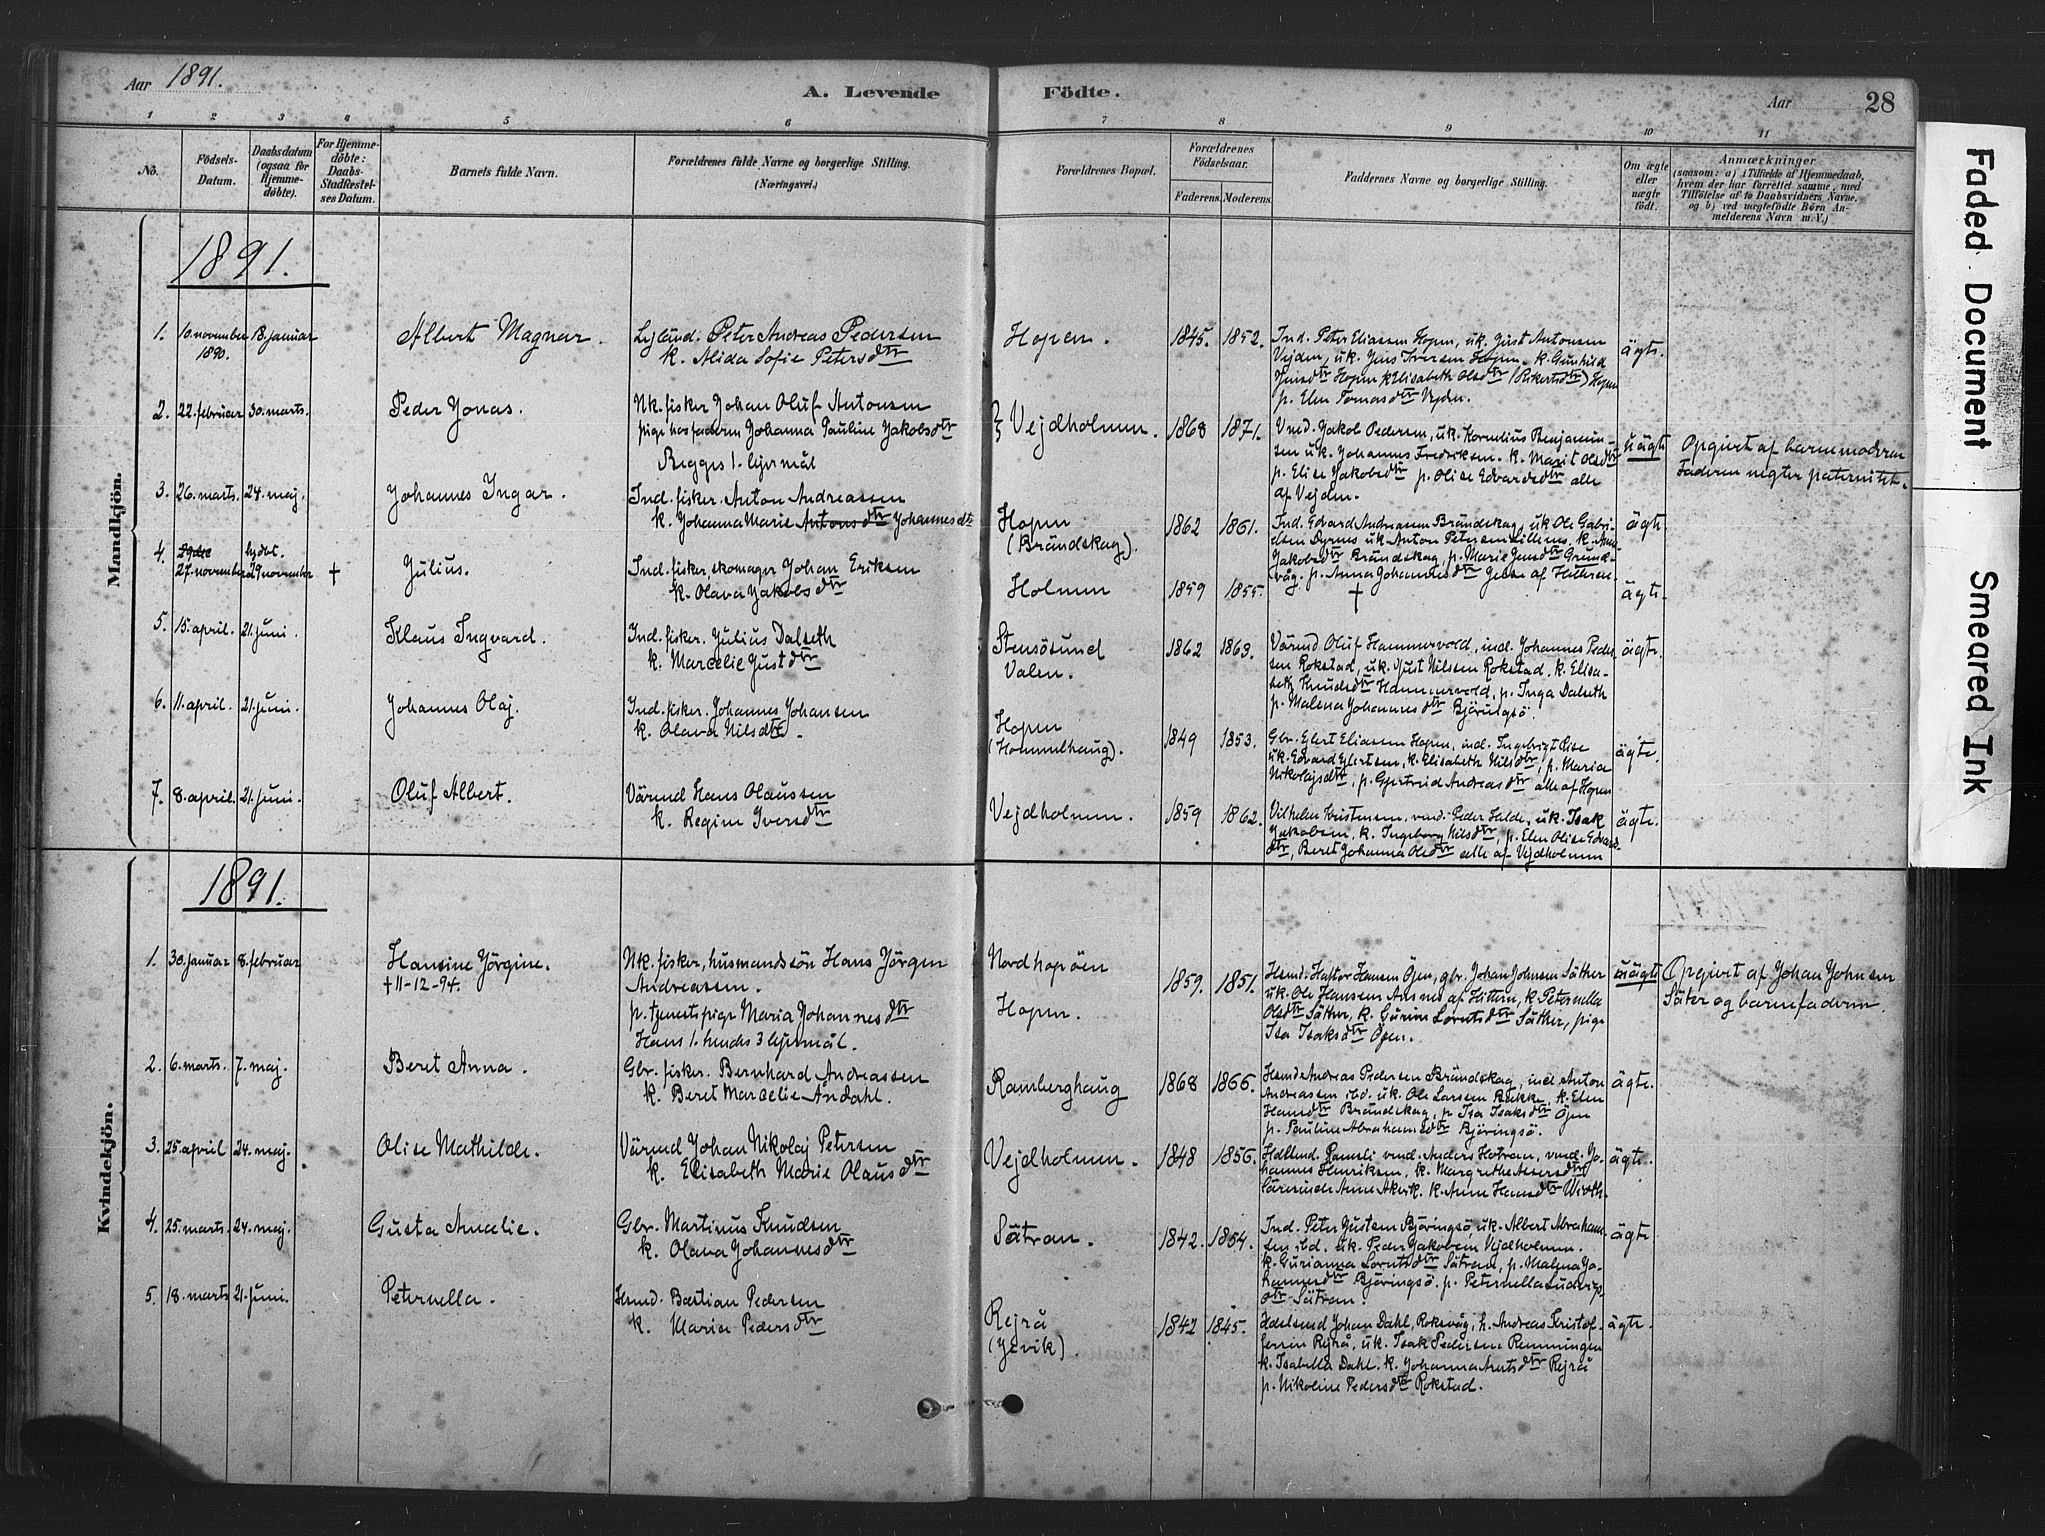 Aar 1891.
A. Levende Födte.
Aar 28
1 2 3 4 5 6 7 8 9 10 11
No.
Födsels-Datum.
Daabsdatum (ogsaa for Hjemmedöbte).
For Hjemmedöbte: Daabs-Stadfæstelses Datum.
Barnets fulde Navn.
Forældrenes fulde Navne og borgerlige Stilling. (Næringsvei.)
Forældrenes Bopæl.
Forældrenes Födselsaar.
Faderens. Moderens.
Faddernes Navne og borgerlige Stilling.
Om ægte eller uægte födt.
Anmærkninger
(saasom: a) i Tilfælde af Hjemmedaab, hvem der har forrettet samme, med Tilföielse af to Daabsvidners Navne. og b) ved uægtefödte Börn Anmelderens Navn m. V.)
Mandkjön.
1891.
1. 10. november 1890. 18. januar
Albert Magnar.
Peter Andreas Pedersen
k. Alida Sofie Petersdtr
Hopen. 1845. 1852.
Ind. Peter Eliassen Hopen, uk. Just Antonsen
Vejden, uk. Jens Iversen Hopen. k. Gunhild
Jensdtr Hopen k. Elisabeth Olsdtr (Rikertsdtr) Hopen
p. Elen Tomasdtr Vejden.
ägte.
2. 22. februar 30. marts.
Peder Jonas.
Nk. fisker Johan Oluf Antonsen
pige hos faderen Johanna Pauline Jakobsdtr
Begges 1. lejermål
Vejdholmen. 1868 1871.
Vmd. Jakob Pedersen, uk. Kornelius Benjamin-
sen uk. Johannes Fredriksen. k. Marit Olsdtr
p. Elise Jakobsdtr p. Olise Edvardsdtr alle
af Vejden.
uägte
Opgivet af barnemoderen
Faderen negter paternitet.
3. 26. marts. 24. maj.
Johannes Ingar.
Ind. fisker. Anton Andreassen
k. Johanna Marie Antonsdtr Johannesdtr
Hopen
(Brändskag).
1862 1861.
Ind. Edvard Andreasen Brändskag, uk Ole Gabri-
elsen Dyrnes uk Anton Petersen k. Anne
Jakobsdtr Brändskag, p. Marie Jensdtr Grund-
våg. p. Anna Johannesdtr
ägte
4. 27. november hjdbt. 29 november †
Julius.
Ind. fisker, skomager Johan Eriksen
k. Olava Jakobsdtr
Holmen 1859 1855.
†
ägte.
5. 15. april. 21. juni.
Klaus Ingvard.
Ind. fisker. Julius Dalseth
k. Marcelie Justdtr
Stensösund
Valen.
1862 1863.
Värmd Oluf Hammervold, ind. Johannes Peder-
sen Rokstad, uk. Just Nilssen Rokstad. k. Elisa-
beth Knudsdtr Hammervold, p. Inga Dalseth
p. Malena Johannesdtr Björingsö.
ägte.
6. 11. april. 21. juni.
Johannes Olaj.
Ind. fisker. Johannes Johansen
k. Olava Nilsdtr.
Hopen
(Hommelhaug).
1849 1853.
Gbr. Ejlert Eliasen Hopen, ind. Ingebrigt Rise
uk. Edvard Ejlertsen, k. Elisabeth Nilsdtr, p. Maria
Nikolajsdtr, p. Gjertrud Andreasdtr alle af Hopen
ägte.
7. 8. april. 21. juni.
Oluf Albert.
Värmd Hans Olaussen
k. Regine Iversdtr
Vejdholmen. 1859 1862.
Vilhelm Kristensen, vmd. Peder Halde, uk. Isak
Jakobsen, k. Ingeborg Nilsdtr, p. Elen Olise Edvards-
dtr, Beret Johanna Olsdtr alle af Vejdholmen
ägte.
Kvindekjön.
1891.
1. 30. januar 8. februar
Hansine Jörgine.
† 11-12-94.
Nk. fisker, husmandssön Hans Jörgen
Andreassen.
p. tjenestepige Maria Johannesdtr
Hans 1. hendes 3 lejermål.
Nordhopöen
Hopen.
1859. 1851.
Hsmd. Haftor Hansen Öen, gbr. Johan Johnsen Säther
uk. Ole Hanssen Ansnes af Hittern, k. Peternella
Olsdtr Säther, k. Gurine Lorntsdtr Säther, pige
Isa Isaksdtr Öen.
uägte
Opgivet af Johan Johnsen
Säter og barnefaderen.
2. 6. marts. 7. maj.
Beret Anna.
Gbr. fisker. Bernhard Andreassen
k. Beret Marcelie Andahl.
Ramberghaug 1868 1866.
Hsmd Andreas Pedersen Brändskag, ind. Anton
Andreasen ibd. uk. Ole Larsen k. Elen
Hansdtr Brändskag, p Isa Isaksdtr Öen
p. Pauline Abrahamsdtr Björingsö.
ägte.
3. 25. april 24. maj.
Olise Mathilde.
Värmd Johan Nikolaj Petersen
k. Elisabeth Marie Olausdtr
Vejdholmen. 1848 1856.
vmd. Anders vmd. Jo-
hannes Henriksen, k. Margrethe
k. Anne Hansdtr
ägte.
4. 25. marts. 24. maj.
Gusta Amalie.
Gbr. Martinus Knudsen
k. Olava Johannesdtr
Sätran. 1842. 1854.
Ind. Peter Justsen Björingsö, uk. Albert Abraham-
sen ibd. uk. Peder Jakobsen Vejdholmen.
k. Gurianna Lorntsdtr Sätran, p. Malena Jo-
hannesdtr Björingsö. p. Peternella Ludvigs-
dtr Sätran.
ägte
5. 18. marts 21. juni.
Peternella.
Hsmd. Bastian Pedersen
k. Marie Pedersdtr
Rejrå
(Jevik).
1842 1845.
Johan Dahl, Rokvåg, h. Andreas Kristof-
fersen Rejrå, uk. Isak Pedersen Remmingen
k. Isabella Dahl. k. Johanna Arntsdtr Rejrå
p. Nikoline Pedersdtr Rokstad.
ägte.
Faded Document Smeared Ink